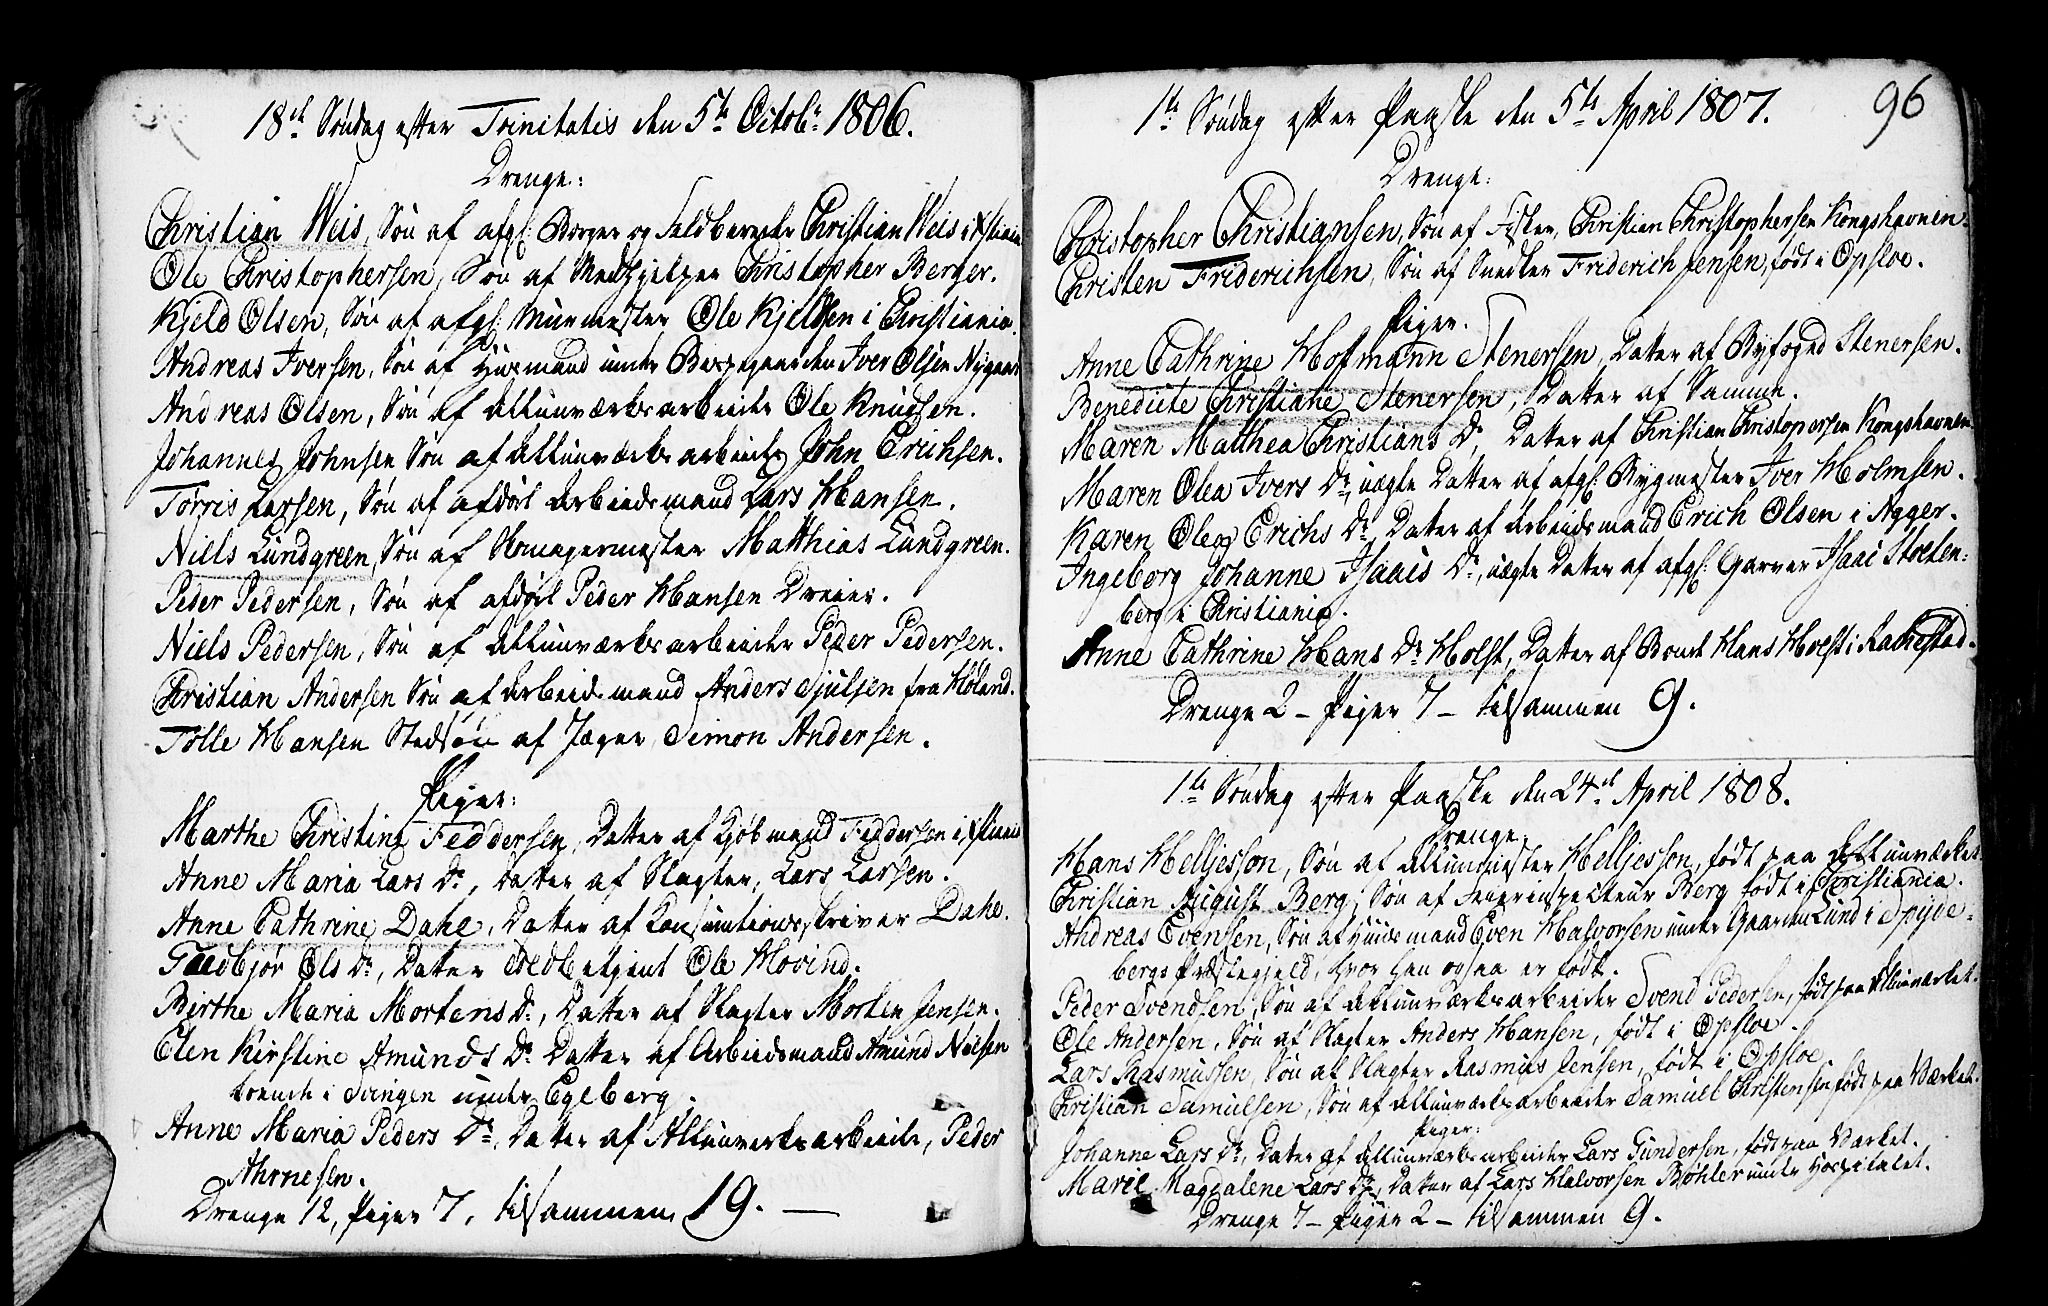 18de Søndag efter Trinitatis den 5te Octobr: 1806.
Drenge:
Christian Weis, Søn af afg: Borger og Feldbereder Christian Weis i Xstiania
Ole Christophersen, Søn af Medhjelper Christopher Berger.
Kjeld Olsen, Søn af afg: Muurmester Ole Kjeldsen i Christiania.
Andreas Iversen, Søn af Huusmand under Bispegaarden Iver Olsen Nygaard
Andreas Olsen, Søn af Allunværksarbeider Ole Knudsen.
Johannes Johnsen Søn af Allunværksarbeider John Erichsen.
Torris Larsen, Søn af afdød Arbeidsmand Lars Hansen.
Niels Lundgreen, Søn af Skomagermester Matthias Lundgreen.
Peder Pedersen, Søn af afdød Peder Hansen Dreier.
Niels Pedersen, Søn af Allunværksarbeider Peder Pedersen.
Christian Andersen Søn af Arbeidsmand Anders Sjulsen fra Høland.
Tolle Hansen Stedsøn af Jæger, Simon Andersen.
Piger:
Marthe Christine Feddersen, Datter af Kjøbmand Feddersen i Xstiania
Anne Maria Lars Dr, Datter af Slagter, Lars Larsen.
Anne Cathrine Dahl, Datter af Consumtionsskriver Dahl.
Ols Dr, Datter Ole Hovind.
Birthe Maria Mortens Dr, Datter af Slagter Morten Jensen.
Elen Kirstine Amunds Dr Datter af Arbeidsmand Amund Nielsen
boende i Svingen under Egeberg.
Anne Maria Peders Dr, Datter af Allunverksarbeider, Peder
Ahrnesen.
Drenge 12, Piger 7, tilsammen 19. —
96
1te Søndag efter Paaske den 5te April 1807.
Drenge:
Christopher Christiansen, Søn af Fisker, Christian Christophersen Kongshavnen.
Christen Friderichsen, Søn af Snedker Friderich Jensen, født i Opsloe.
Piger.
Anne Cathrine Hofmann Stenersen, Datter af Byfoged Stenersen.
Benedicte Christiane Stenersen, Datter af Samme.
Maren Matthea Christians Dr Datter af Christian Christopersen Kongshavnen
Maren Olea Ivers Dr, uægte Datter af afg: Bygmester Iver Holmsen.
Karen Olea Erichs Dr, Datter af Arbeidsmand Erich Olsen i Agger.
Ingeborg Johanne Isaacs Dr, uægte Datter af afg: Garver Isaac Stolten:
berg i Christiania.
Anne Cathrine Hans Dr Holst, Datter af Bonde Hans Holst i Rakkestad.
Drenge 2 – Piger 7 – tilsammen 9.
1te Søndag efter Paaske den 24de April 1808.
Drenge:
Hans Helljesson, Søn af Allunmester Helljesson, født paa Allunværket.
Christian August Berg, Søn af Berg født i Christiania.
Andreas Evensen, Søn af Huusmand Even Halvorsen under Gaarden Lund i Spyde-
bergs Præstegjeld, hvor han ogsaa er født.
Peder Svendsen, Søn af Allunværksarbeider Svend Pedersen, født paa Allunværket.
Ole Andersen, Søn af Slagter Anders Hansen, født i Opsloe.
Lars Rasmussen, Søn af Slagter Rasmus Jensen, født i Opsloe.
Christian Samulsen, Søn af Allunværksarbeider Samuel Christensen født paa Værket.
Piger:
Johanne Lars Dr, Datter af Allunværksarbeider Lars Gundersen, født paa Værket.
Marie Magdalene Lars Dr, Datter af Lars Halvorsen Bøhler under Hospitalet.
Drenge 7 – Piger 2 – tilsammen 9.